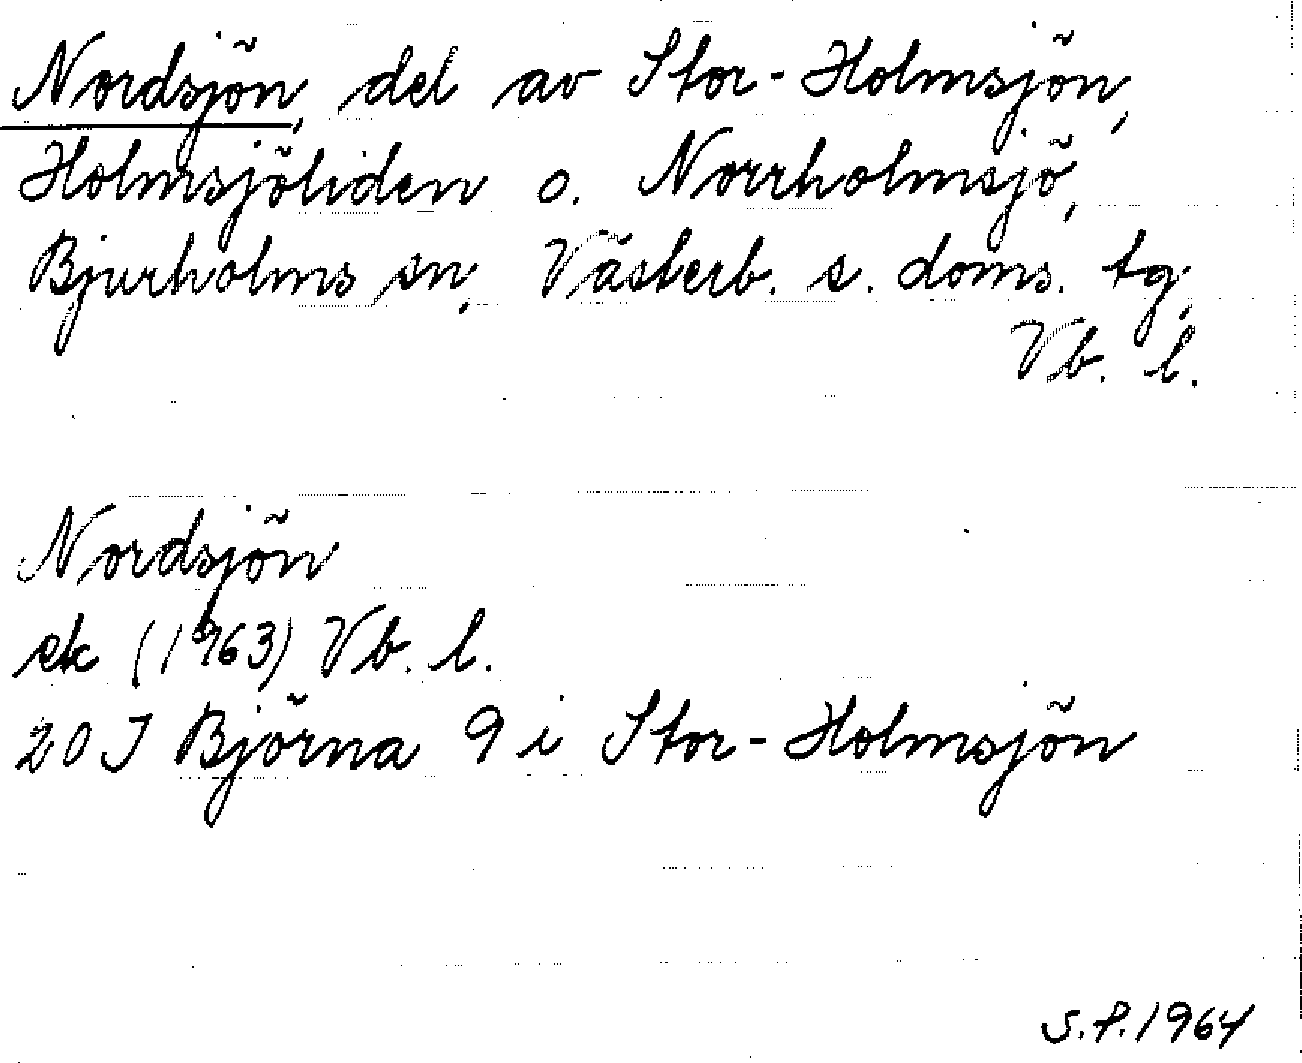 Nordsjön, del av Stor-Holmsjön,
Holmsjöliden o. Norrholmsjö,
Bjurholms sn, Västerb. s. doms. tg,
Vb. l.
Nordsjön
ek (1963) Vb. l.
20 J Björna 9 i Stor-Holmsjön
S.P. 1964